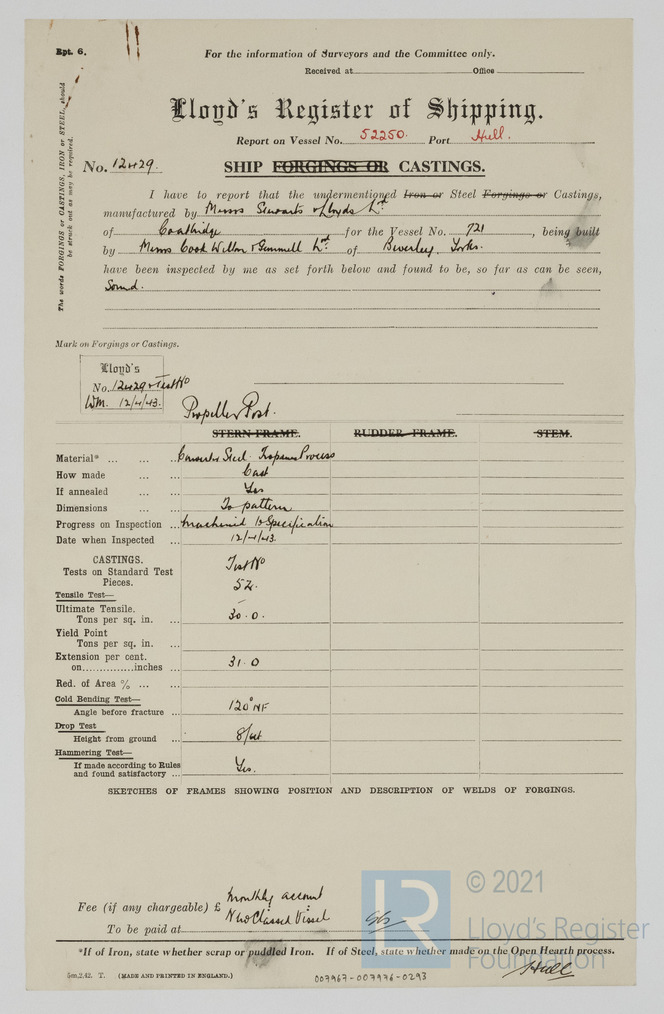 Rpt. 6.
For the information of Surveyors and the Committee only.
Received at Office
Lloyd's Register of Shipping.
Report on Vessel No. 52250. Port Hull.
No. 12429. SHIP FORGINGS OR CASTINGS.
The words FORGINGS or CASTINGS, IRON or STEEL, should
be struck out as may be required.
I have to report that the undermentioned Iron or Steel Forgings or Castings,
manufactured by Messrs Stewarts & Lloyds Ltd
of Coatbridge for the Vessel No. 721, being built
by Messrs Cook Welton & Gemmell Ltd. of Beverley, Yorks.
have been inspected by me as set forth below and found to be, so far as can be seen,
Sound.
Mark on Forgings or Castings.
Lloyd's
No. 12429 & Test No
WM. 12/4/43.
Propeller Post.
STERN FRAME. RUDDER FRAME. STEM.
Material* ... ... ... Converter Steel. Tropenas Process
How made ... ... Cast
If annealed ... ... Yes
Dimensions ... ... To pattern
Progress on Inspection ... Machined to Specification
Date when Inspected ... 12/4/43.
CASTINGS. Test No
Tests on Standard Test
Pieces. 52.
Tensile Test—
Ultimate Tensile.
Tons per sq. in. ... 30.0.
Yield Point
Tons per sq. in. ...
Extension per cent.
on..............inches ... 31.0
Red. of Area % ... ...
Cold Bending Test—
Angle before fracture ... 120° NF
Drop Test
Height from ground ... 8 feet
Hammering Test—
If made according to Rules
and found satisfactory ... Yes.
SKETCHES OF FRAMES SHOWING POSITION AND DESCRIPTION OF WELDS OF FORGINGS.
Fee (if any chargeable) £ Monthly account
New Classed Vessel
To be paid at
*If of Iron, state whether scrap or puddled Iron. If of Steel, state whether made on the Open Hearth process.
5m.2,42. T. (MADE AND PRINTED IN ENGLAND.)
007967-007976-0293
Hull
LR
© 2021
Lloyd's Register
Foundation